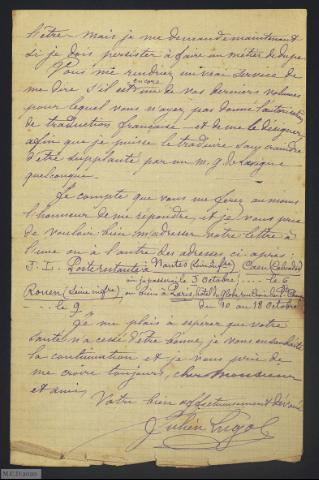 l'être - mais je me demande maintenant
si je dois persister à faire un métier de dupe.
Vous me rendriez un vrai service de
me dire s'il est encore un de vos derniers volumes
pour lequel vous n'ayez pas donné l'autorisation
de traduction française - et de me le désigner
afin que je puisse le traduire sans craindre
d'être supplanté par un m. g. de Lavigne
quelconque.
Je compte que vous me ferez au moins
l'honneur de me répondre, et je vous prie
de vouloir bien m'adresser votre lettre à
l'une ou à l'autre des adresses ci-après:
J. L. Poste restante à Nantes (Loire infre) Caen (Calvados)
où je passerai le 3 Octobre, le 6
Rouen (Seine infre) ou bien à Paris, hôtel du Globe
le 9 du 10 au 18 Octobre
Je me plais à espérer que votre
santé n'a cessé d'être bonne, je vous en souhaite
la continuation et je vous prie de
me croire toujours, cher Monsieur
et ami
Votre bien affectionnément dévoué
Julien Lugol
M.C.D 2020